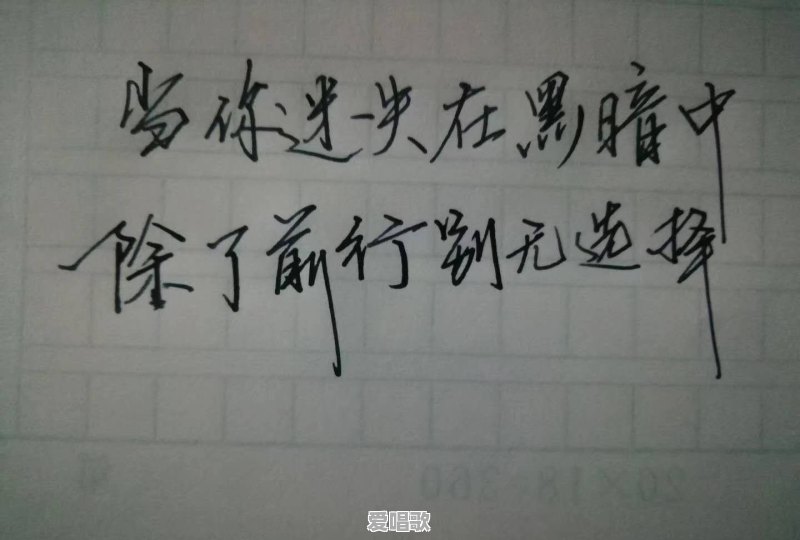 当你迷失在黑暗中
除了前行别无选择
20×18=360
爱唱歌